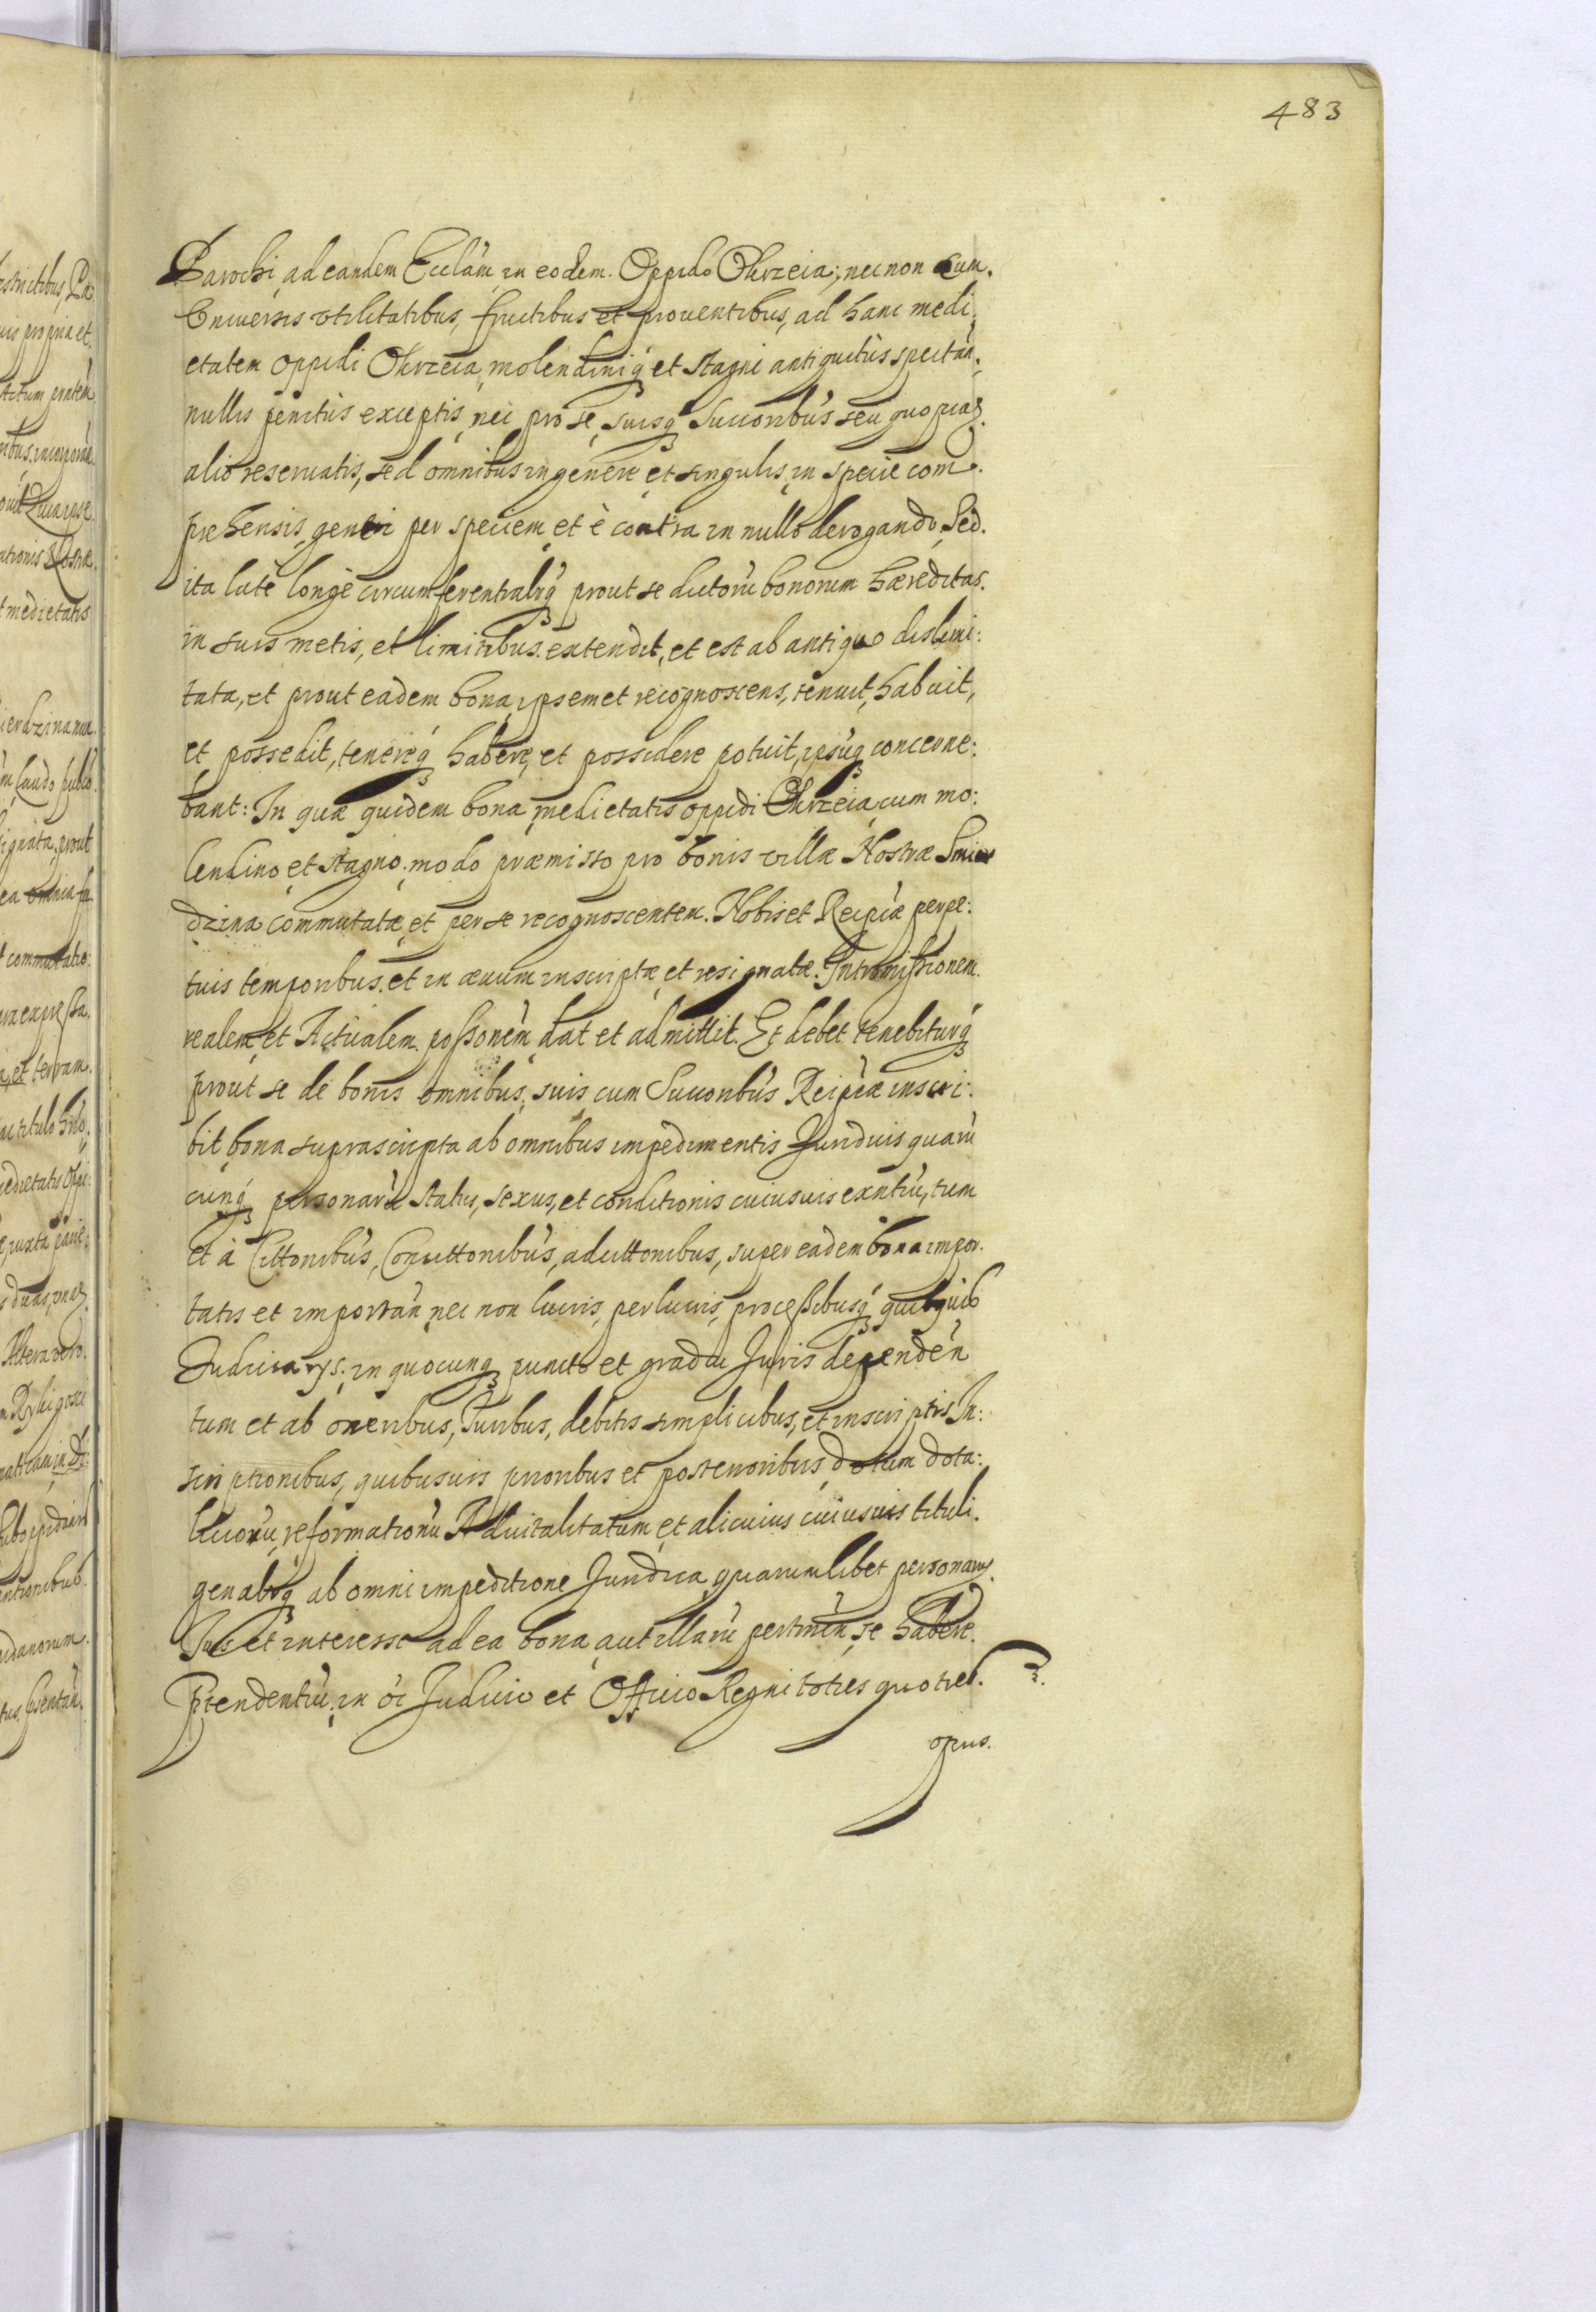 483
Parochi, ad eandem Eccl̃am in eodem Oppido Okrzeia; nec non cum
Universis utilitatibus, fructibus et proventibus, ad hanc medi:
etatem oppidi Okrzeia, molendiniq́ et stagni antiquitùs spectañ:
nullis penitùs exceptis, nec pro se, suisq́ Succoribùs seu quopiam
alio reservatis, sed omnibus in genere et singulis in specie com:
prehensis, generi per speciem et è contra in nullo derogando, Sed
ita latè longè circumferentialr̃q́ prout se dictorũ bonorum hæreditas
in suis metis, et limitibus extendit, et est ab antiquo deslimi:
tata, et prout eadem bona, ipsemet recognoscens, tenuit, habuit,
et possedit, tenereq́ habere, et possidere potuit, ipsũq́ concerne:
bant: In quæ quidem bona medietatis oppidi Okrzeia, cum mo:
lendino et stagno, modo præmisso pro bonis villæ Nostræ Smier
dzina commutatæ et per se recognoscentem Nobis et Reipcæ perpe:
tuis temporibus et in ævum inscriptæ et resignatæ. Intromissionem
realem, et Actualem possonẽm dat et admittit. Et debet tenebiturq́
prout se de bonis omnibus suis cum Succoribùs Reipcæ inscri:
bit bona suprascripta ab omnibus impedimentis Juridicis quarũ
cunq́ personarũ status, sexus, et conditionis cuiusvis exñtiũ, tum
et à Cittonibùs, Concittonibùs, adcittonibus, super eadem bona impor
tatis et importañ nec non lucris, perlucris, processibusq́ quibusvis
Judiciarys in quocunq́ puncto et gradu Juris dependeñ
tum et ab oneribus, Juribus, debitis simplicibus, et inscriptis In:
scriptionibus, quibusvis prioribus et posterioribùs dotum dota:
liciorũ, reformationũ Advitalitatum et alicuius cuiusvis tituli
genalr̃q́ ab omni impeditione Juridica quarumlibet personarum
Jus et interesse ad ea bona aut illarũ pertineñ se habere
Prtendentiũ in oi Judicio et Officio Regni toties quoties
opus.